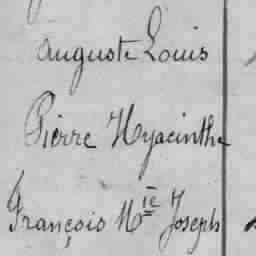 Auguste Louis
Pierre Hyacinthe
François Mie Joseph